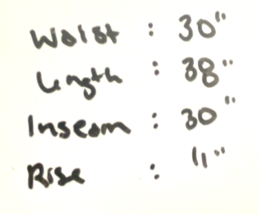 Waist : 30"
Length : 38"
Inseam : 30"
Rise : 11"